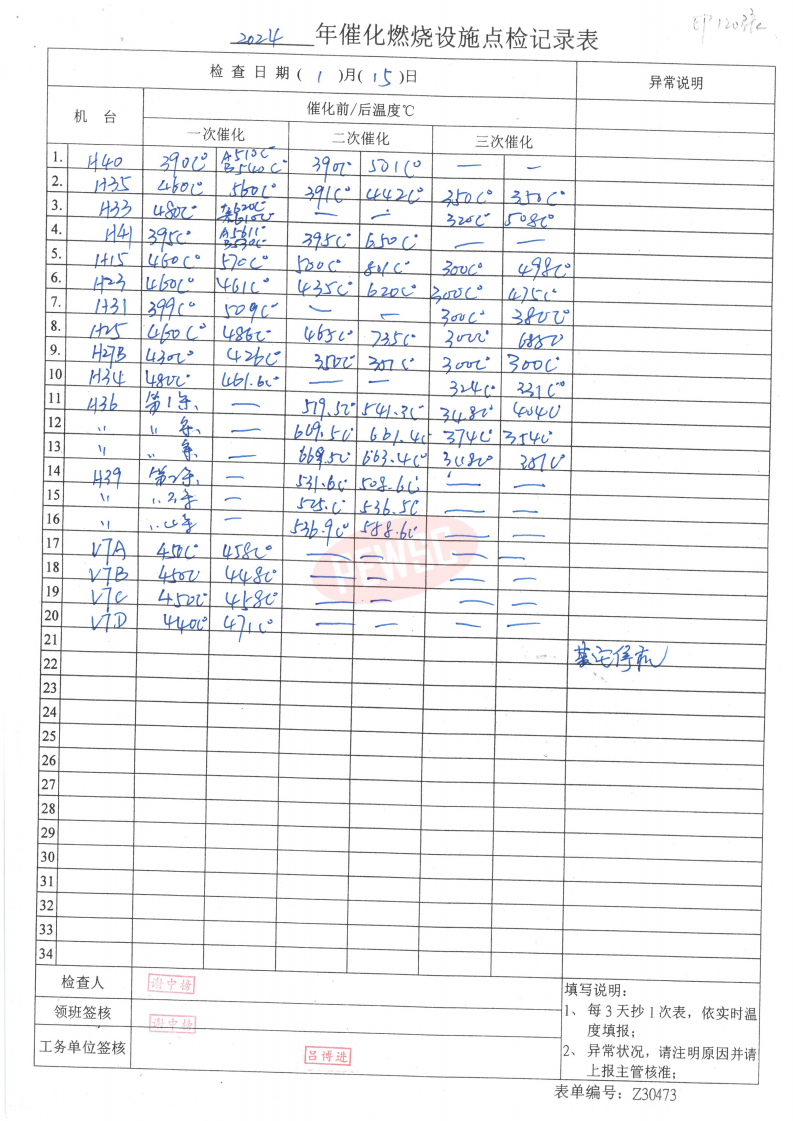 2024 年催化燃烧设施点检记录表
检查日期(1)月(15)日 异常说明
机台 催化前/后温度℃
一次催化 二次催化 三次催化
1. H40 390C° A510C° B540C° 390C 501C° — —
2. H35 460C° 560C° 391C° 442C° 350C° 350C°
3. H33 480C — — 320C° 508C°
4. H41 395C° A561C 395C° 650C° — —
5. H15 460C° 570C° 500C° 801C° 300C° 498C°
6. H23 460C° 461C° 435C° 620C° 300C° 475C°
7. H31 399C° 509C° — — 300C° 380C°
8. H25 460C° 486C° 465C° 735C° 300C° 688C°
9. H27B 430C° 426C° 350C° 301C° 300C° 300C°
10 H34 480C° 461.6C° — — 324C° 331C°
11 H36 第1套、 — 519.5C° 541.3C° 348C° 404C°
12 〃 〃 — 669.5C° 661.4C° 374C° 354C°
13 〃 〃 — 669.5C° 663.4C° 348C° 351C°
14 H39 — 531.6C° 508.6C° — —
15 〃 — 525.C° 536.5C° — —
16 〃 — 536.9C° 588.6C° — —
17 V7A 450C° 458C° — — — —
18 V7B 450C° 448C° — — — —
19 V7C 450C° 458C° — — — —
20 V7D 440C° 471C° — — — —
21
22
23
24
25
26
27
28
29
30
31
32
33
34
HEWSC
检查人 谢中榜
领班签核 谢中榜
工务单位签核 吕博进
填写说明:
1、每3天抄1次表，依实时温
度填报;
2、异常状况，请注明原因并请
上报主管核准;
表单编号: Z30473